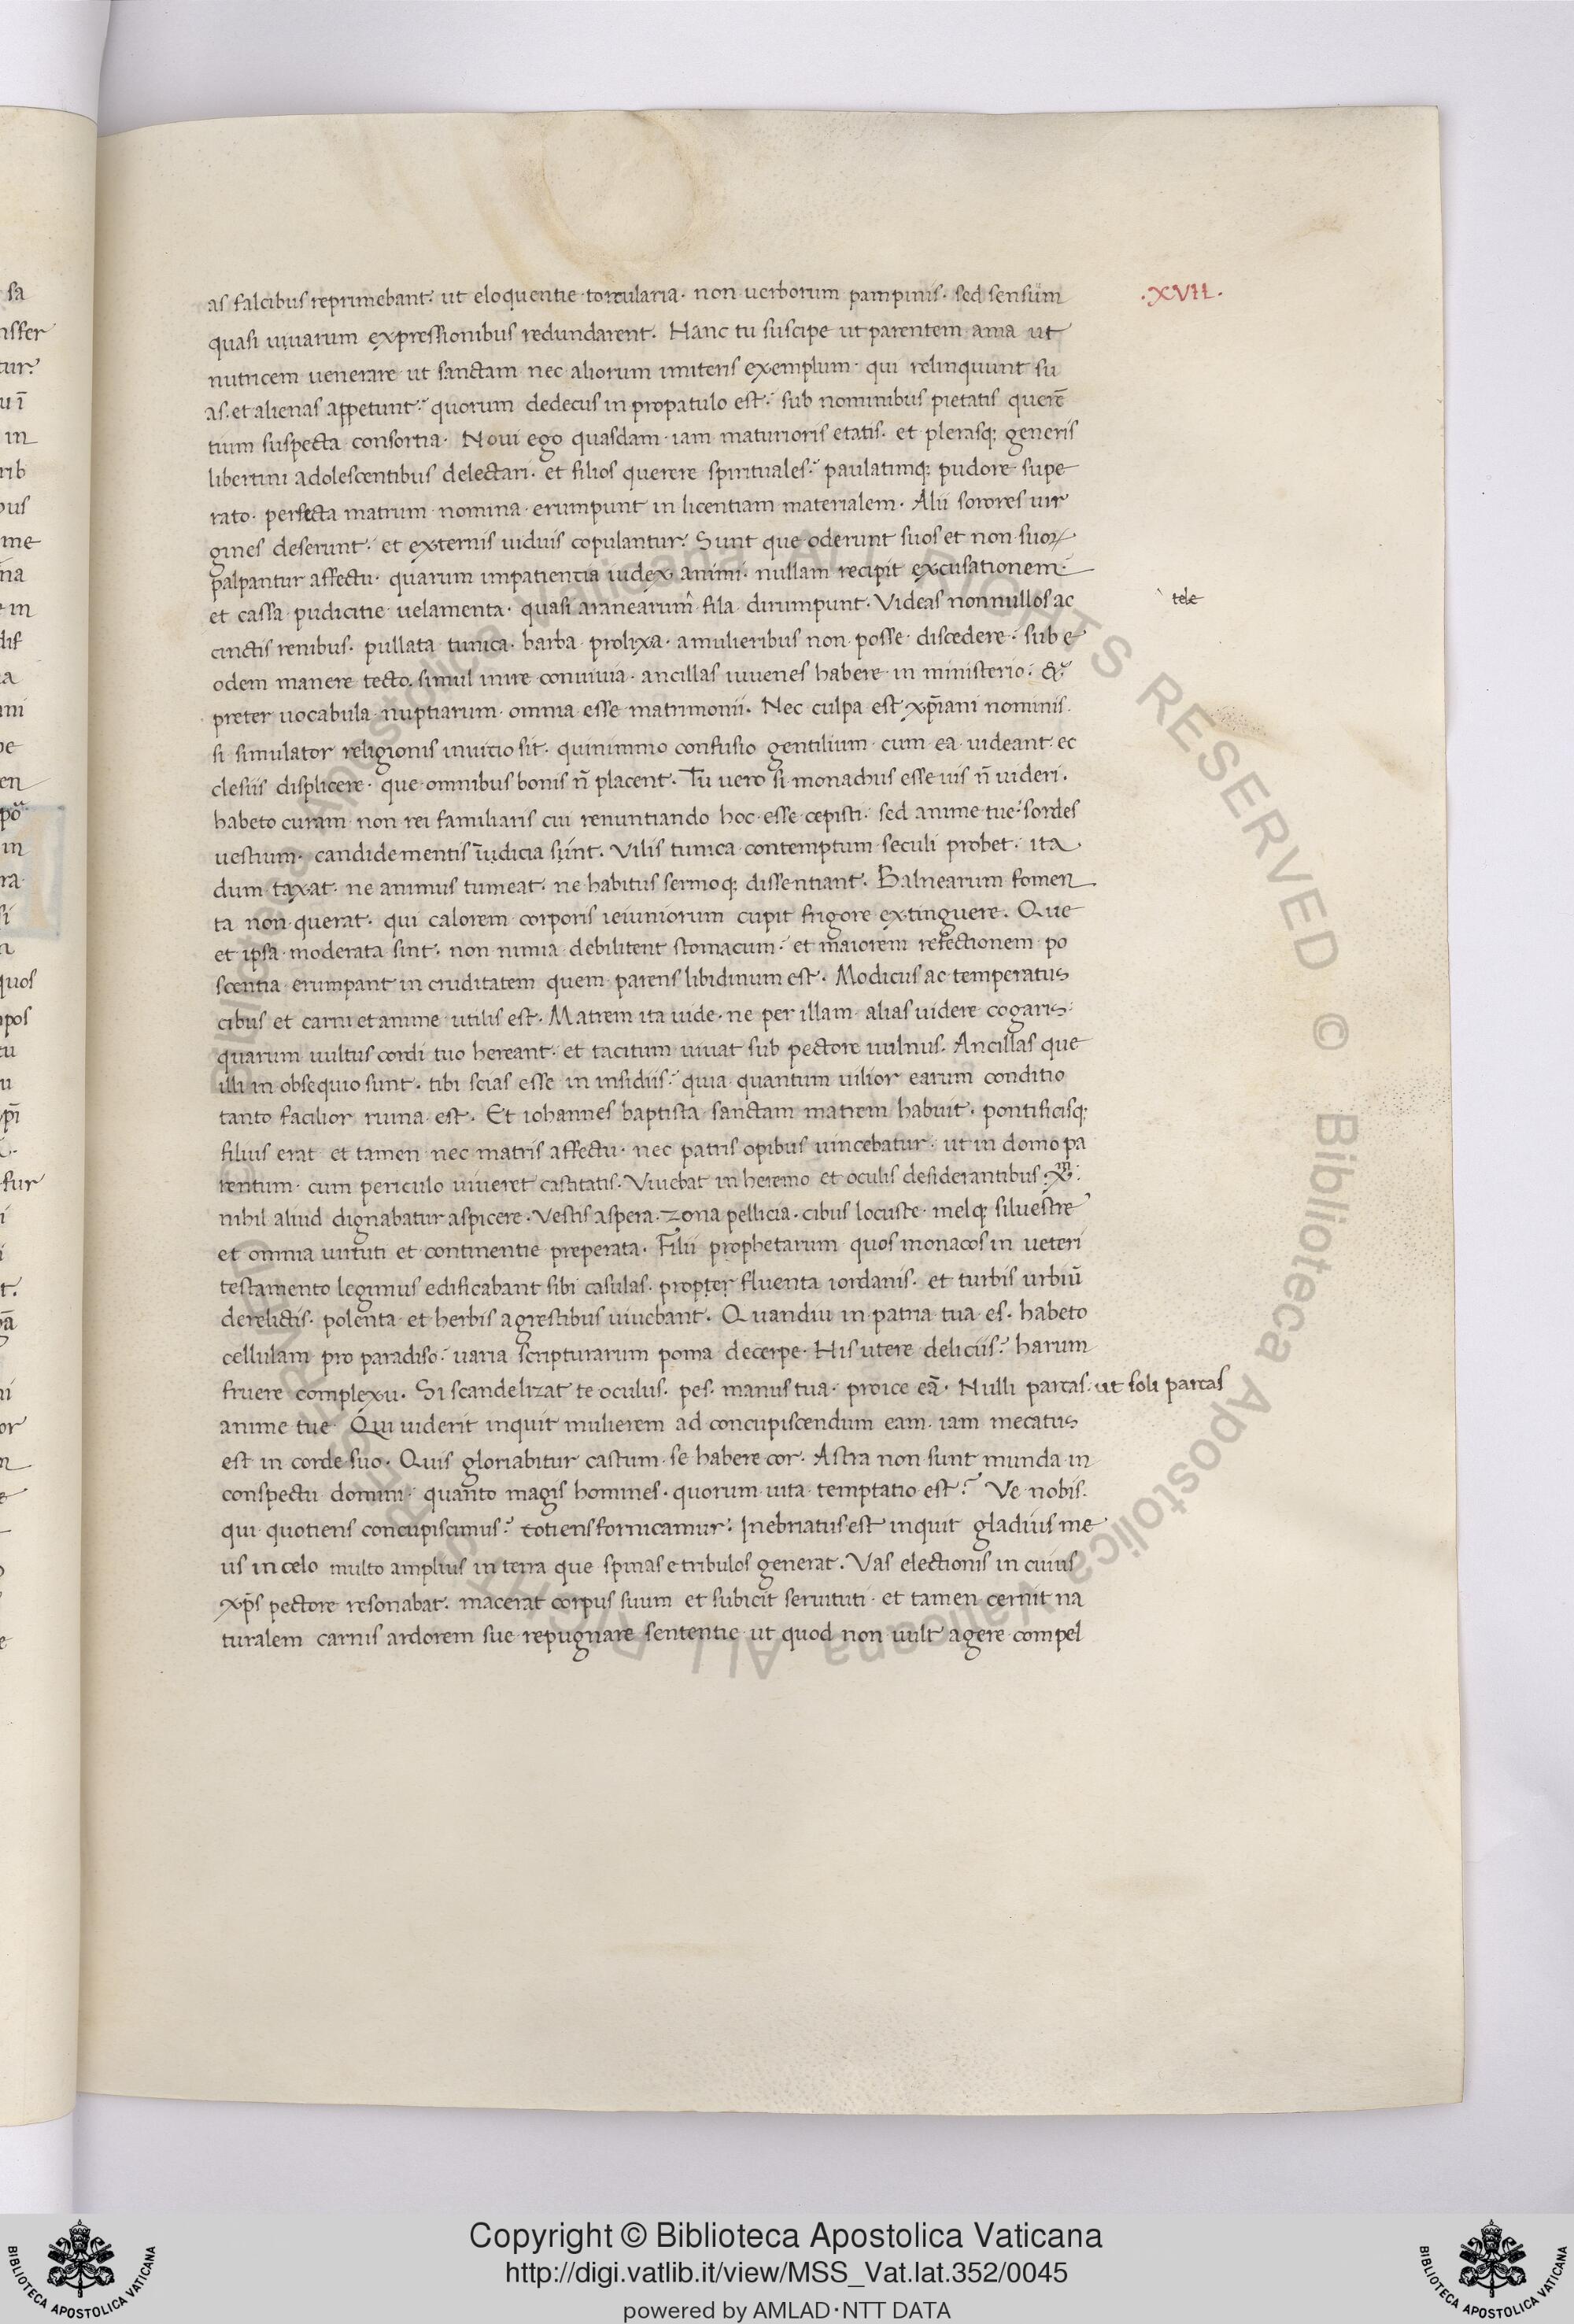 .XVII.
as falcibus reprimebant. ut eloquentie torcularia. non uerborum pampinis. sed sensuum
quasi uuarum expressionibus redundarent. Hanc tu suscipe ut parentem ama ut
nutricem uenerare ut sanctam nec aliorum imiteris exemplum qui relinquunt su
as. et alienas appetunt. quorum dedecus in propatulo est. sub nominibus pietatis querē
tium suspecta consortia. Noui ego quasdam iam maturioris etatis. et plerasq; generis
libertini adolescentibus delectari. et filios querere spirituales. paulatimq; pudore supe
rato. perfecta matrum nomina erumpunt in licentiam materialem. Alii sorores uir
gines deserunt. et externis uiduis copulantur. Sunt que oderunt suos et non suoꝝ
palpantur affectu. quarum impatientia iudex animi. nullam recipit excusationem.
et cassa pudicitie uelamenta. quasi aranearum fila dirumpunt. Videas nonnullos ac
tele
cinctis renibus. pullata tunica. barba prolixa. a mulieribus non posse discedere. sub e
odem manere tecto. simul inire conuiuia. ancillas iuuenes habere in ministerio. &
preter uocabula nuptiarum omnia esse matrimonii. Nec culpa est xp̄iani nominis.
si simulator religionis in uicio sit. quinimmo confusio gentilium cum ea uideant ec
clesiis displicere. que omnibus bonis n̄ placent. Tu uero si monachus esse uis n̄ uideri.
habeto curam non rei familiaris cui renuntiando hoc esse cepisti. sed anime tue. sordes
uestium. candide mentis iudicia sint. Vilis tunica contemptum seculi probet. ita
dum taxat. ne animus tumeat. ne habitus sermoq; dissentiant. Balnearum fomen
ta non querat. qui calorem corporis ieiuniorum cupit frigore extinguere. Que
et ipsa moderata sint. non nimia debilitent stomacum. et maiorem refectionem po
scentia erumpant in cruditatem quem parens libidinum est. Modicus ac temperatus
cibus et carni et anime utilis est. Matrem ita uide. ne per illam alias uidere cogaris.
quarum uultus cordi tuo hereant. et tacitum uiuat sub pectore uulnus. Ancillas que
illi in obsequio sunt. tibi scias esse in insidiis. quia quantum uilior earum conditio
tanto facilior ruina est. Et iohannes baptista sanctam matrem habuit. pontificisq;
filius erat et tamen nec matris affectu. nec patris opibus uincebatur. ut in domo pa
rentum cum periculo uiueret castitatis. Viuebat in heremo et oculis desiderantibus xp̄m.
nihil aliud dignabatur aspicere. Vestis aspera. zona pellicia. cibus locuste melq; siluestre
et omnia uirtuti et continentie preperata. Filii prophetarum quos monacos in ueteri
testamento legimus edificabant sibi casulas. propter fluenta iordanis. et turbis urbiū
derelictis. polenta et herbis agrestibus uiuebant. Quandiu in patria tua es. habeto
cellulam pro paradiso. uaria scripturarum poma decerpe. His utere deliciis. harum
fruere complexu. Si scandelizat te oculus. pes. manus tua. proice eā. Nulli parcas. ut soli parcas
anime tue Qui uiderit inquit mulierem ad concupiscendum eam. iam mecatus
est in corde suo. Quis gloriabitur castum se habere cor. Astra non sunt munda in
conspectu domini. quanto magis homines. quorum uita temptatio est. Ve nobis.
qui quotiens concupiscimus. totiens fornicamur. Inebriatus est inquit gladius me
us in celo multo amplius in terra que spinas e tribulos generat. Vas electionis in cuius
xp̄s pectore resonabat. macerat corpus suum et subicit seruituti. et tamen cernit na
turalem carnis ardorem sue repugnare sententie ut quod non uult agere compel
Copyright © Biblioteca Apostolica Vaticana
http://digi.vatlib.it/view/MSS_Vat.lat.352/0045
powered by AMLAD·NTT DATA
BIBLIOTECA APOSTOLICA VATICANA
BIBLIOTECA APOSTOLICA VATICANA